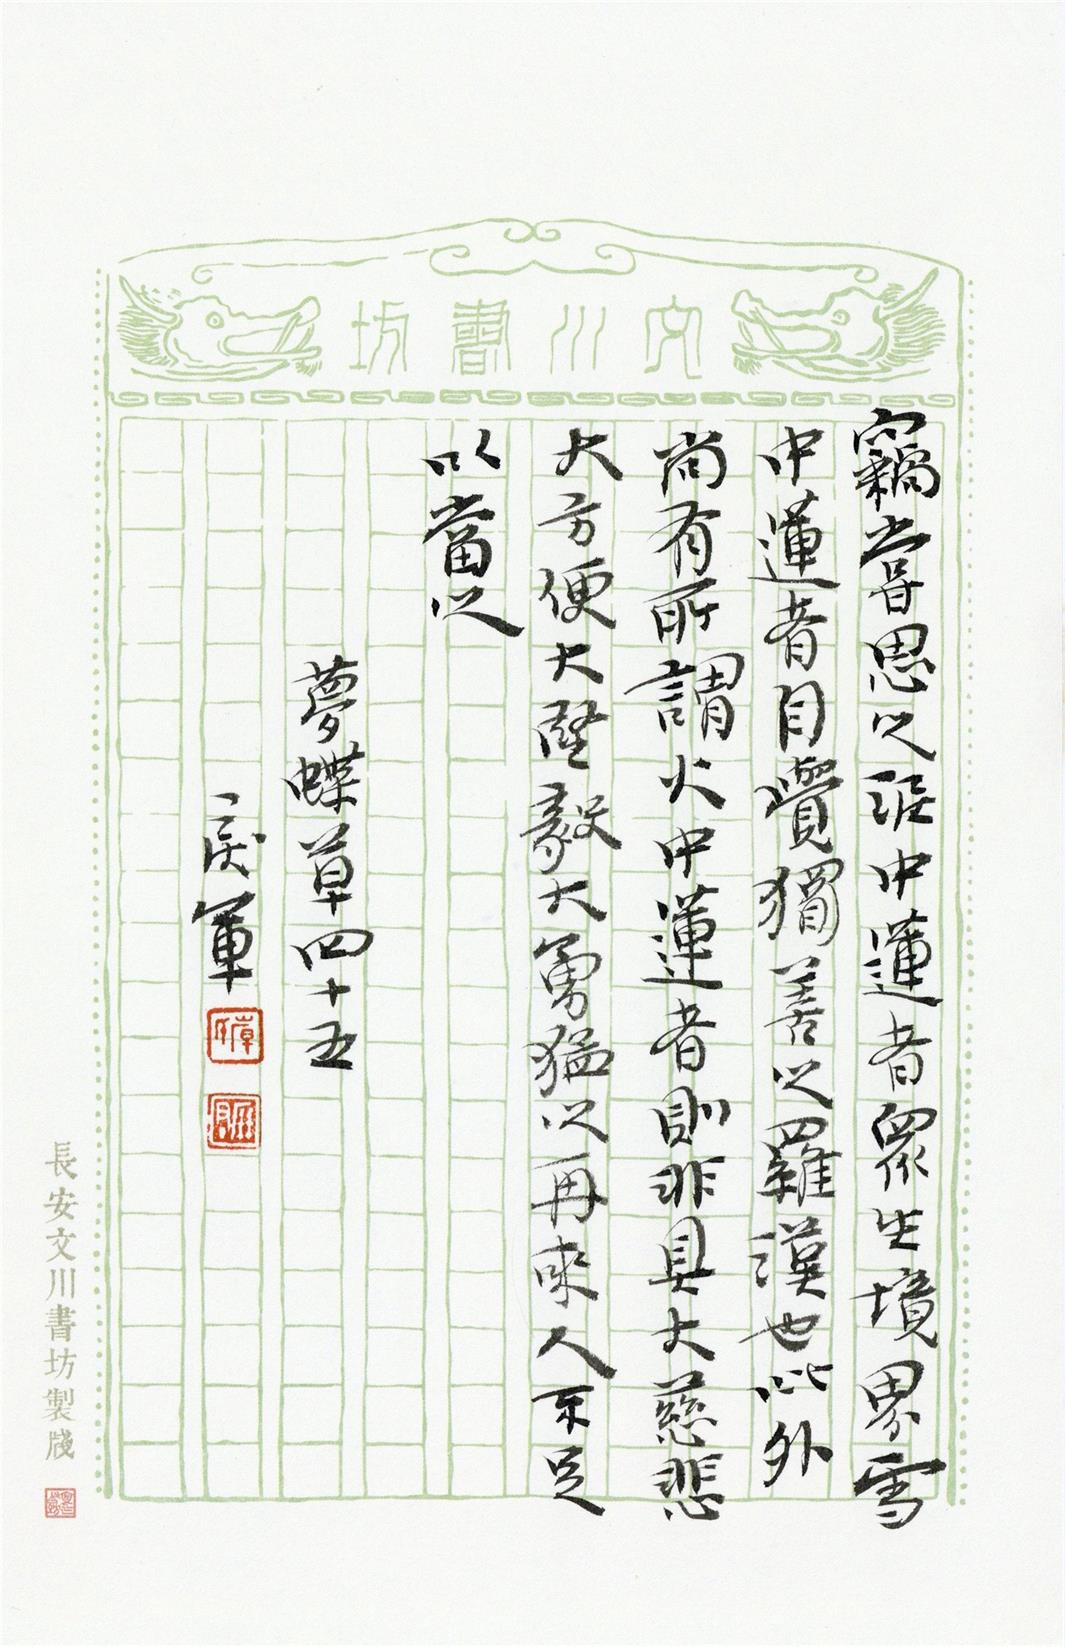 文川書坊
竊嘗思之淤中蓮者眾生境界雪
中蓮者自覺獨善之羅漢也此外
尚有所謂火中蓮者則非具大慈悲
大方便大堅毅大勇猛之再來人不足
以當之
夢蝶草四十五
軍
長安文川書坊製牋